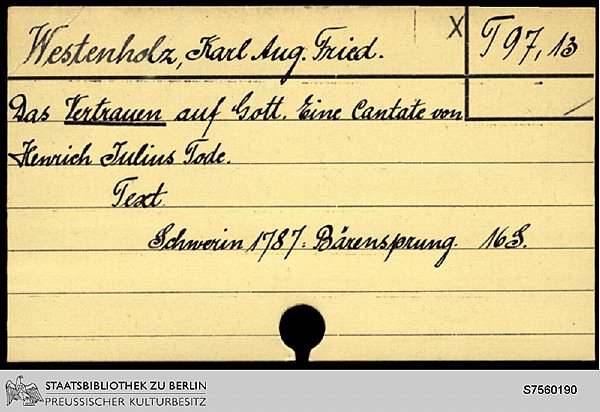 Westenholz, Karl Aug. Fried.
X
T 97, 13
Das Vertrauen auf Gott. Eine Cantate von
Henrich Julius Tode.
Text.
Schwerin 1787: Bärensprung. 16 S.
STAATSBIBLIOTHEK ZU BERLIN
PREUSSISCHER KULTURBESITZ
S7560190